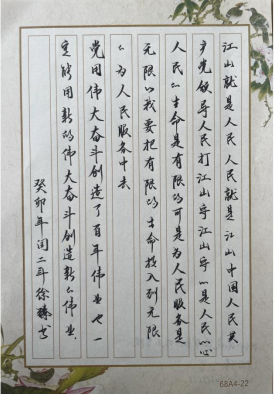 江山就是人民人民就是江山中国人民共
产党领导人民打江山守江山守的是人民的心
人民的生命是有限的可是为人民服务是
无限的我要把有限的生命投入到无限
的为人民服务中去
党用伟大奋斗创造了百年伟业也一
定能用新的伟大奋斗创造新的伟业
癸卯年闰二月徐臻书
68A4-22